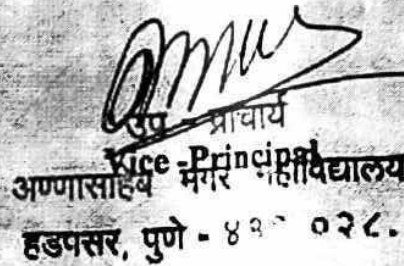 उप - प्राचार्य
Vice-Principal
अण्णासाहेब मगर महाविद्यालय
हडपसर, पुणे - ४११ ०२८.